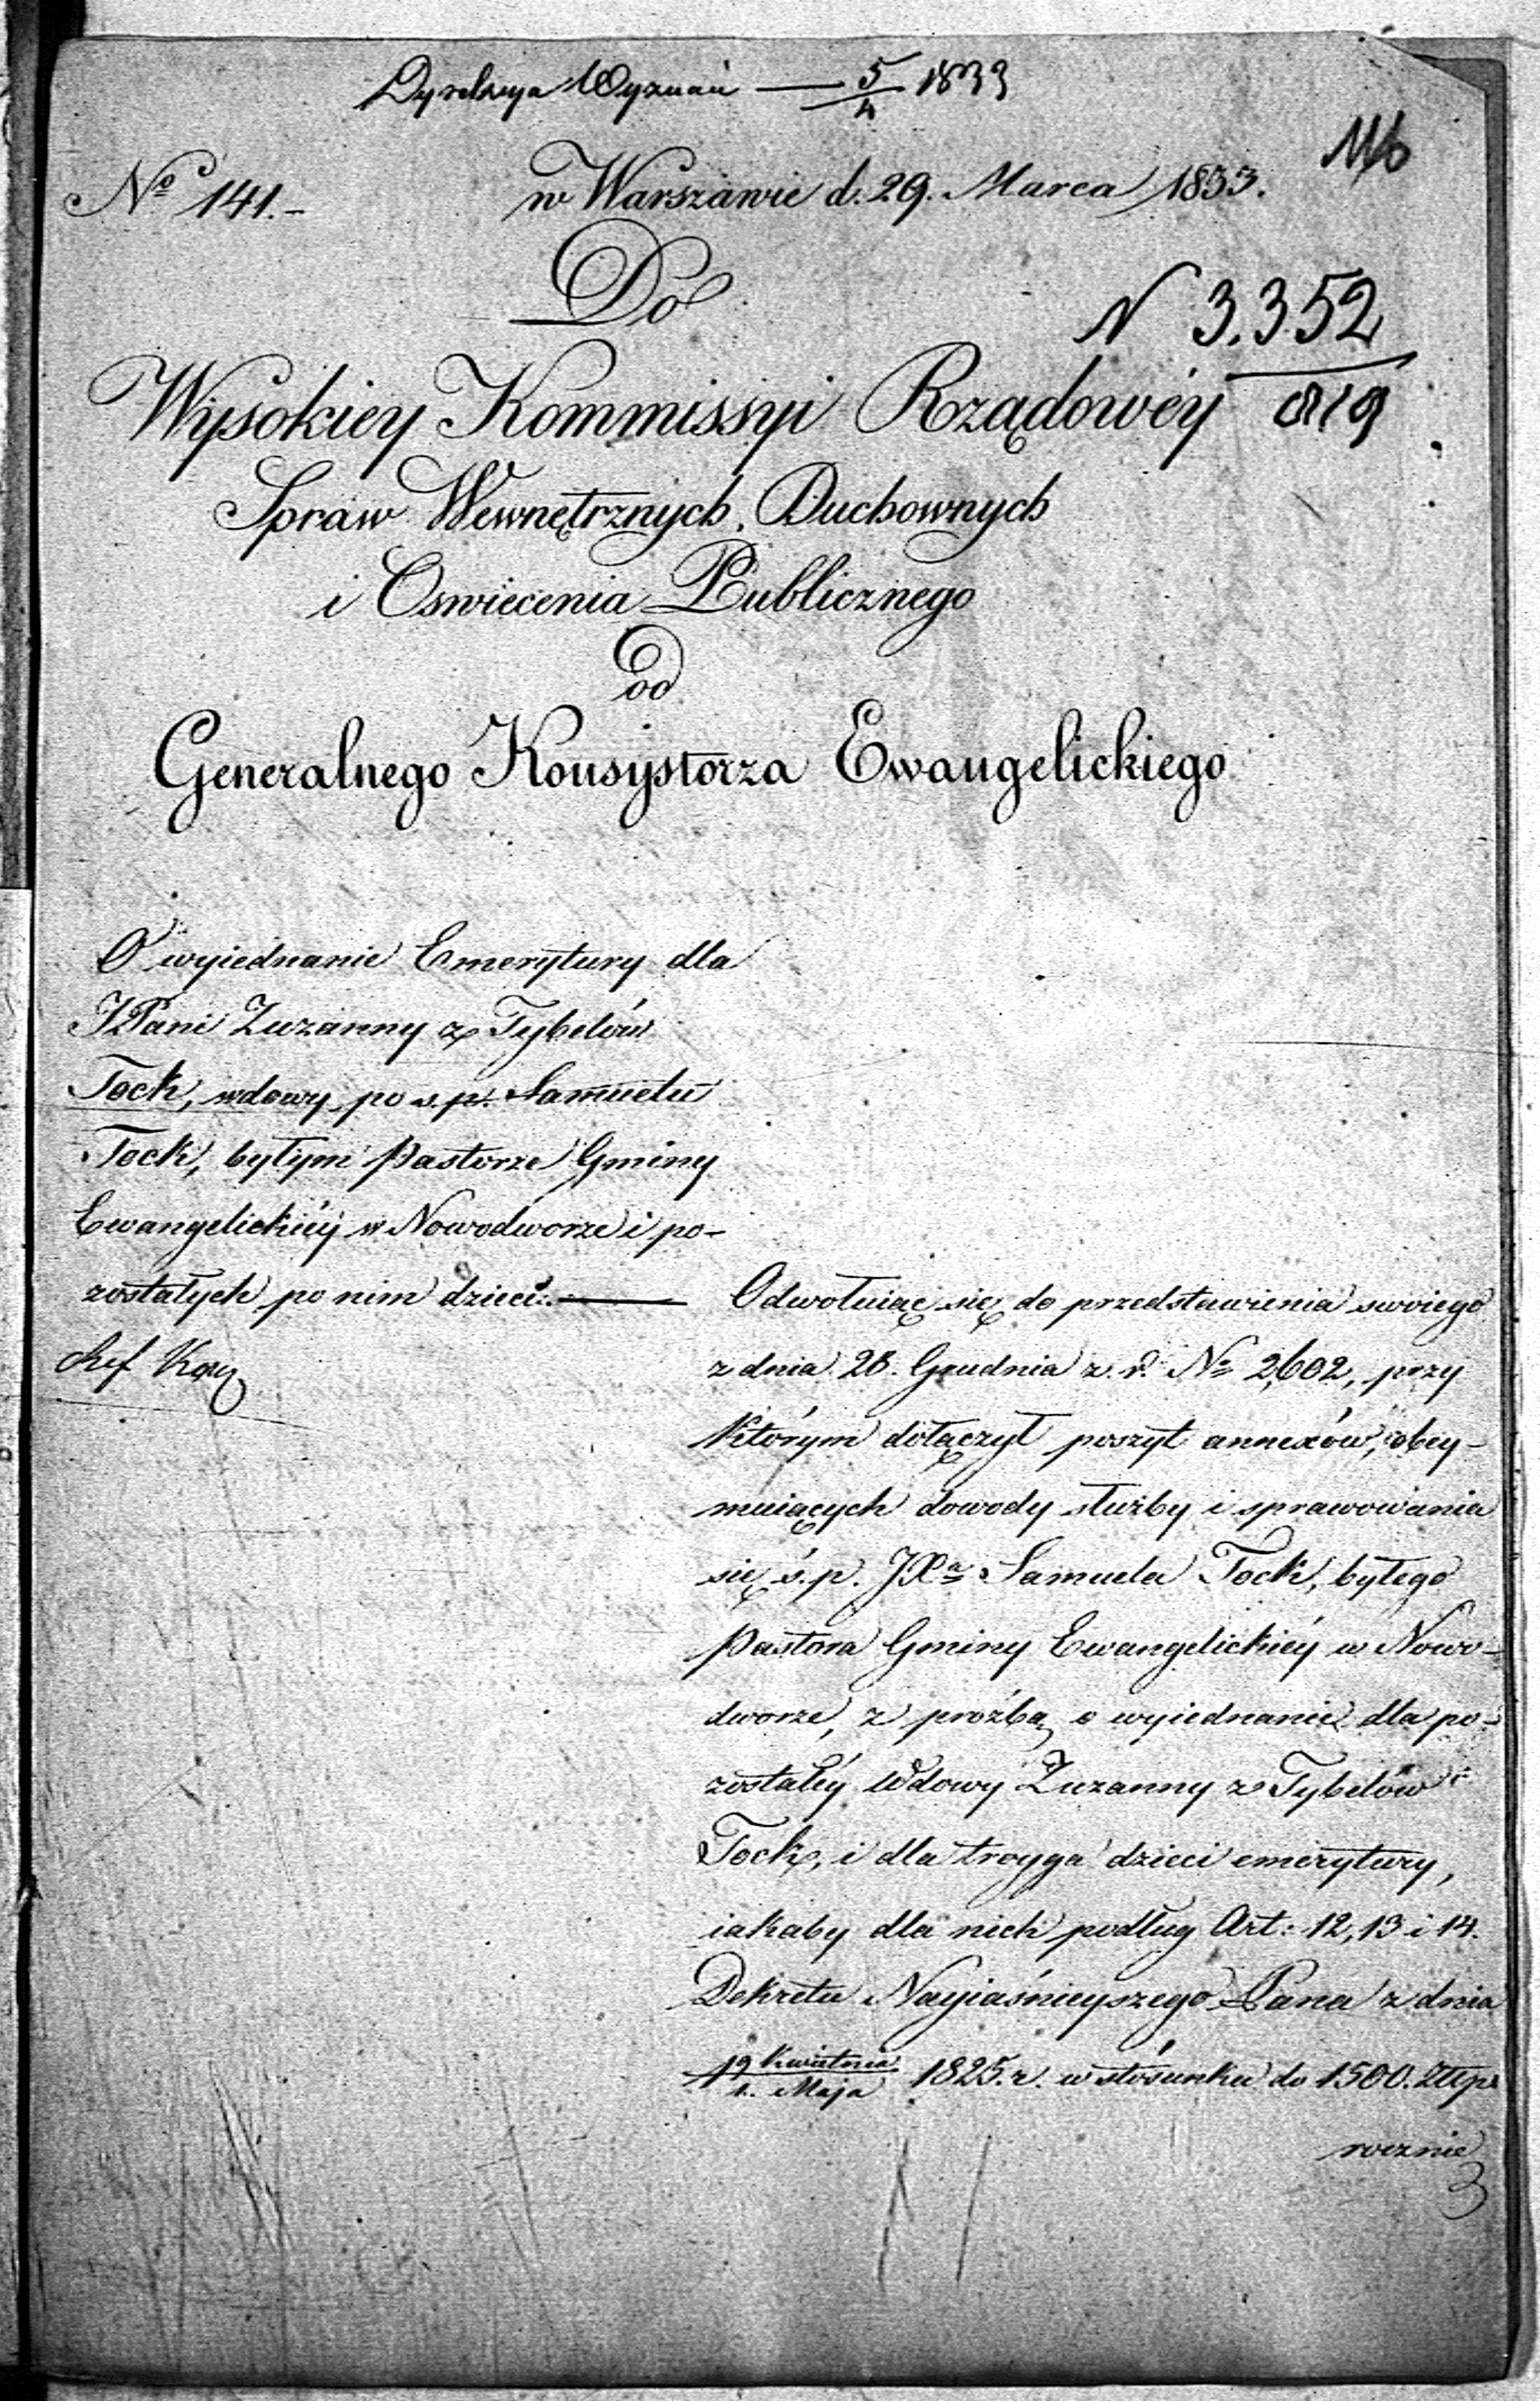 Dyrekcya Wyznań — 5/4 1833
116
No 141.-
w Warszawie d. 29. Marca 1833.
Do
N 3.352
819
Wysokiey Kommissyi Rządowéy
Spraw Wewnętrznych, Duchownych
i Oswiecenia Publicznego
od
Generalnego Konsystorza Ewangelickiego
O wyiednanie Emerytury dla
JPani Zuzanny z Tybelów
Tock, wdowy po s.p. Samuelu
Tock, byłym Pastorze Gminy
Ewangelickiéy w Nowodworze i po-
zostałych po nim dzieci. —
Odwołuiąc się do przedstawienia swoiego
z dnia 28. Grudnia z. r. No 2,602, przy
którym dołączył poszyt annexów, obey-
muiących dowody służby i sprawowania
się ś.p. JXa Samuela Tock, byłego
Pastora Gminy Ewangelickiéy w Nowo-
dworze, z proźbą o wyiednanie dla po-
zostałéy Wdowy Zuzanny z Tybelów
Tock, i dla troyga dzieci emerytury,
iakaby dla nich podług Art: 12, 13 i 14.
Dekretu Nayiaśnieyszego Pana z dnia
19 Kwietnia/1. Maja 1825. r. w stósunku do 1500. Złtp.
rocznie
3